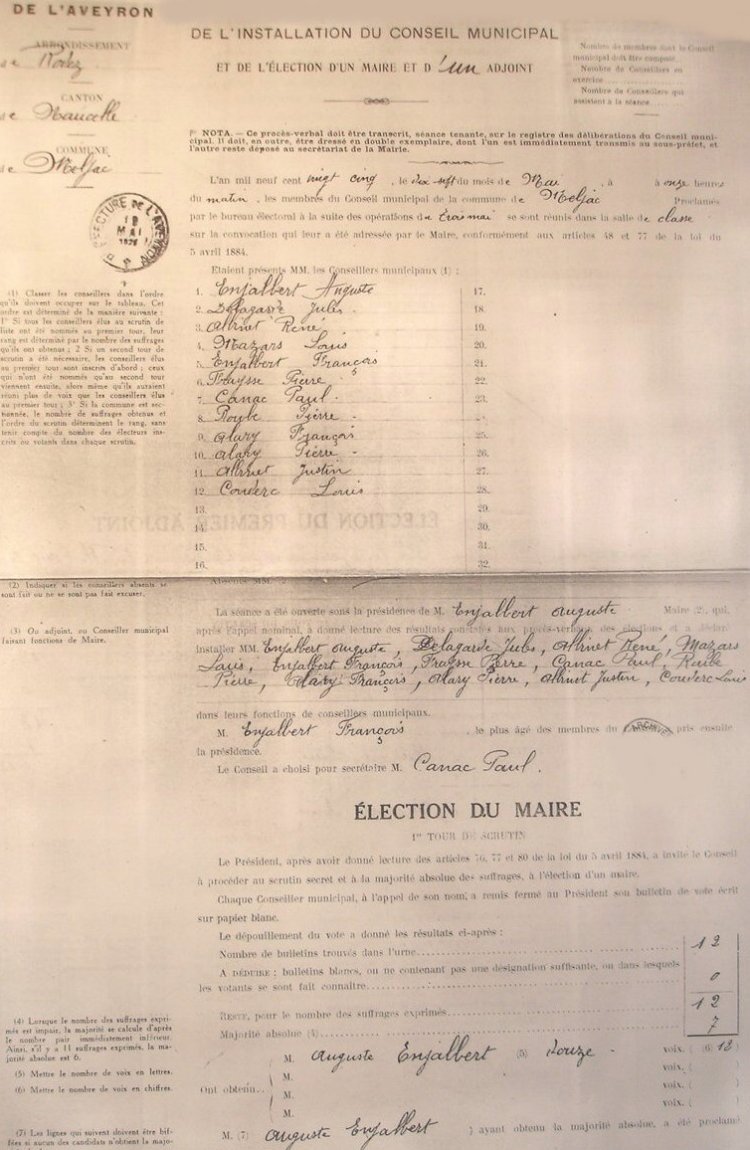 DE L'AVEYRON
ARRONDISSEMENT
de Rodez
CANTON
de Naucelle
COMMUNE
de Meljac
PRÉFECTURE DE L'AVEYRON
MAI
DE L'INSTALLATION DU CONSEIL MUNICIPAL
ET DE L'ÉLECTION D'UN MAIRE ET D'un ADJOINT
Nombre de membres dont le Conseil
municipal doit être composé
Nombre de Conseillers en
exercice
Nombre de Conseillers qui
assistent à la séance
NOTA. — Ce procès-verbal doit être transcrit, séance tenante, sur le registre des délibérations du Conseil muni-
cipal. Il doit, en outre, être dressé en double exemplaire, dont l'un est immédiatement transmis au sous-préfet, et
l'autre reste déposé au secrétariat de la Mairie.
L'an mil neuf cent vingt cinq, le dix sept du mois de Mai, à à onze heures
du matin, les membres du Conseil municipal de la commune de Meljac Proclamés
par le bureau électoral à la suite des opérations du trois mai se sont réunis dans la salle de classe
sur la convocation qui leur a été adressée par le Maire, conformément aux articles 48 et 77 de la loi du
5 avril 1884.
Etaient présents MM. les Conseillers municipaux (1) :
1. Enjalbert Auguste 17.
2. Delagarde Jules 18.
3. Albinet René 19.
4. Mazars Louis 20.
5. Enjalbert François 21.
6. Fraysse Pierre 22.
7. Canac Paul 23.
8. Roube Pierre
9. Alary François 25.
10. Alary Pierre 26.
11. Albinet Justin 27.
12. Couderc Louis 28.
13. 29.
14. 30.
15. 31.
16. 32.
(1) Classer les conseillers dans l'ordre
qu'ils doivent occuper sur le tableau. Cet
ordre est déterminé de la manière suivante :
1° Si tous les conseillers élus au scrutin de
liste ont été nommés au premier tour, leur
rang est déterminé par le nombre des suffrages
qu'ils ont obtenus ; 2 Si un second tour de
scrutin a été nécessaire, les conseillers élus
au premier tour sont inscrits d'abord ; ceux
qui n'ont été nommés qu'au second tour
viennent ensuite, alors même qu'ils auraient
réuni plus de voix que les conseillers élus
au premier tour ; 3° Si la commune est sec-
tionnée, le nombre de suffrages obtenus et
l'ordre du scrutin déterminent le rang, sans
tenir compte du nombre des électeurs ins-
crits ou votants dans chaque scrutin.
Absents MM.
(2) Indiquer si les conseillers absents se
sont fait ou ne se sont pas fait excuser.
(3) Ou adjoint, ou Conseiller municipal
faisant fonctions de Maire.
La séance a été ouverte sous la présidence de M. Enjalbert Auguste Maire qui,
après l'appel nominal, a donné lecture des résultats constatés aux procès-verbaux des élections et a déclaré
installer MM. Enjalbert Auguste, Delagarde Jules, Albinet René, Mazars
Louis, Enjalbert François, Fraysse Pierre, Canac Paul, Roube
Pierre, Alary François, Alary Pierre, Albinet Justin, Couderc Louis
dans leurs fonctions de conseillers municipaux.
M. Enjalbert François, le plus âgé des membres du pris ensuite
la présidence.
Le Conseil a choisi pour secrétaire M. Canac Paul.
ÉLECTION DU MAIRE
1er TOUR DE SCRUTIN
Le Président, après avoir donné lecture des articles 76, 77 et 80 de la loi du 5 avril 1884, a invité le Conseil
à procéder au scrutin secret et à la majorité absolue des suffrages, à l'élection d'un maire.
Chaque Conseiller municipal, à l'appel de son nom, a remis fermé au Président son bulletin de vote écrit
sur papier blanc.
Le dépouillement du vote a donné les résultats ci-après :
Nombre de bulletins trouvés dans l'urne 12
A DÉDUIRE : bulletins blancs, ou ne contenant pas une désignation suffisante, ou dans lesquels
les votants se sont fait connaître 0
RESTE, pour le nombre des suffrages exprimés 12
Majorité absolue (4) 7
(4) Lorsque le nombre des suffrages expri-
més est impair, la majorité se calcule d'après
le nombre pair immédiatement inférieur.
Ainsi, s'il y a 11 suffrages exprimés, la ma-
jorité absolue est 6.
(5) Mettre le nombre de voix en lettres.
(6) Mettre le nombre de voix en chiffres.
M. Auguste Enjalbert (5) Douze voix. (6) 12)
M. voix. (
Ont obtenu.. M. voix. (
M. voix. (
(7) Les lignes qui suivent doivent être bif-
fées si aucun des candidats n'obtient la majo-
M. (7) Auguste Enjalbert ) ayant obtenu la majorité absolue, a été proclamé